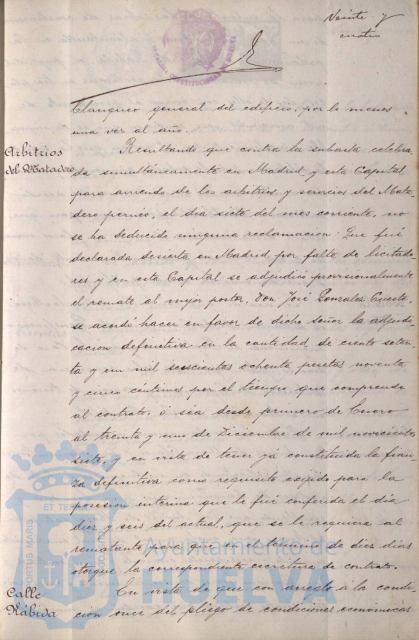 Veinte y
cuatro
blanqueo general del edificio, por lo menos
una vez al año.
Arbitrios
del Matadero
Resultando que contra la subasta celebra
da simultaneamente en Madrid y esta Capital
para arriendo de los arbitrios y servicios del Mata
dero perviò, el dia siete del mes corriente, no
se ha deducido ninguna reclamacion: Que fué
declarada desierta en Madrid por falta de licitado
res y en esta Capital se adjudicó provisionalmente
el remate al mejor postor, Don José Gonzalez Cuesta
se acordó hacer en favor de dicho señor la adjudi
cacion definitiva en la cantidad de ciento seten
ta y un mil seiscientos ochenta pesetas noventa
y cinco céntimos por el tiempo que comprende
el contrato, ó sea desde primero de Enero
al treinta y uno de Diciembre de mil novecientos
siete, y en vista de tener yá constituida la fian
za definitiva como requisito exigido para la
posesion interina que le fué conferida el dia
diez y seis del actual, que se le requiera al
rematante para que en el término de diez dias
otorgue la correspondiente escritura de contrato.
Calle
Rábida
En vista de que con arreglo á la condi
cion once del pliego de condiciones económicas
PORTUS MARIS
ET TERRÆ
Ayuntamiento de
HUELVA